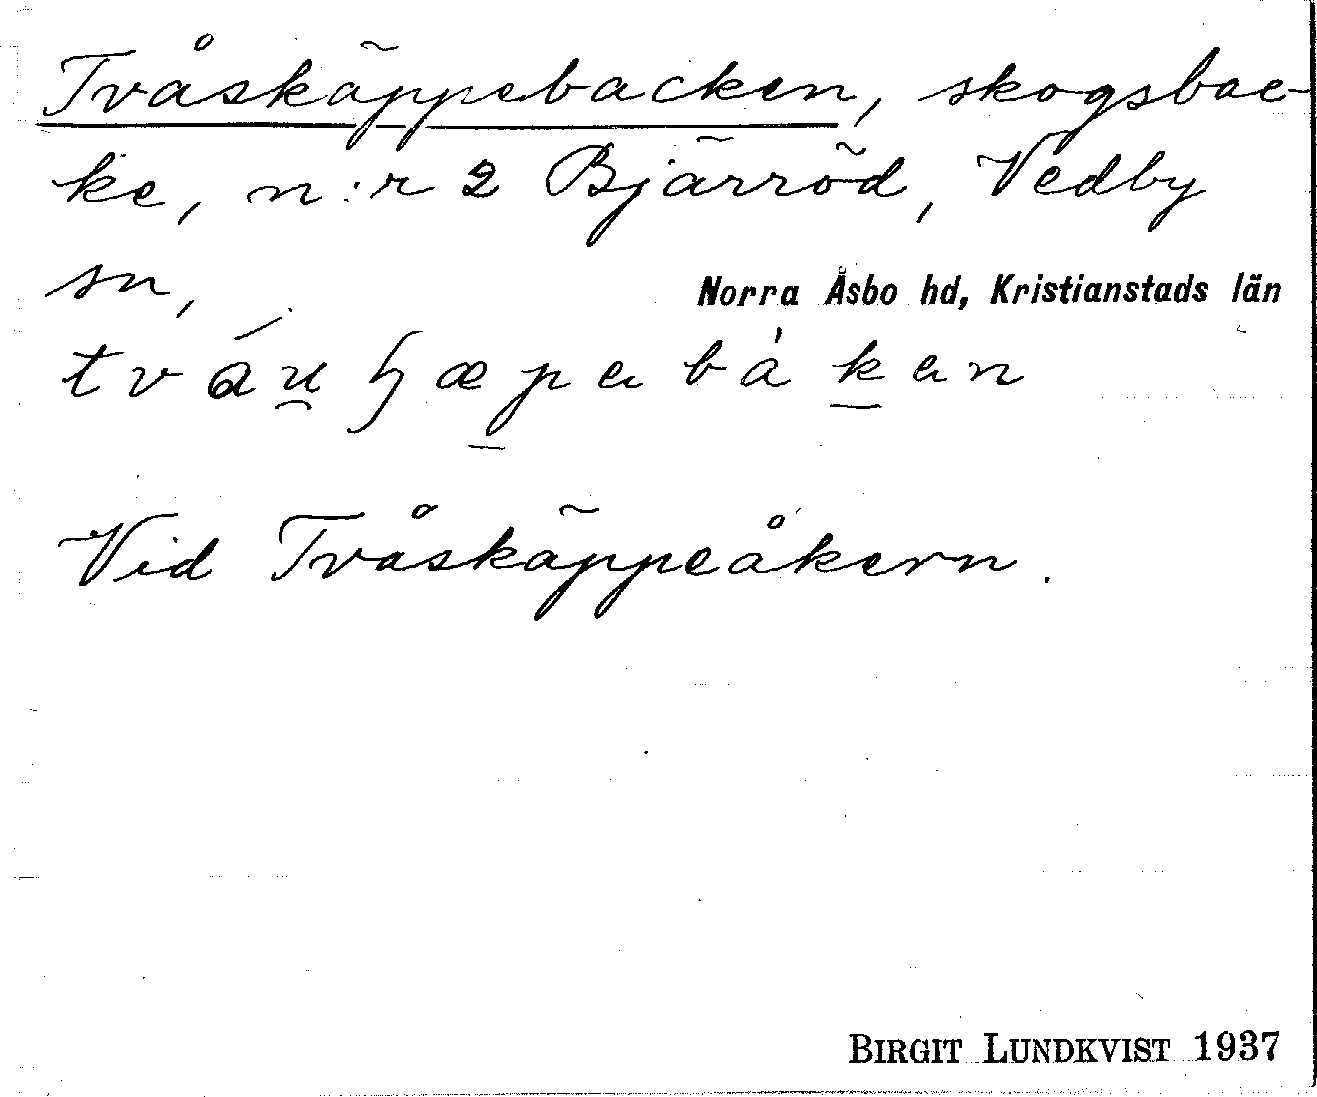 Tvåskäppebacken, skogsbac-
ke, n:r 2 Bjärröd, Vedby
sn,
Norra Åsbo hd, Kristianstads län
Vid Tvåskäppeåkern.
BIRGIT LUNDKVIST 1937